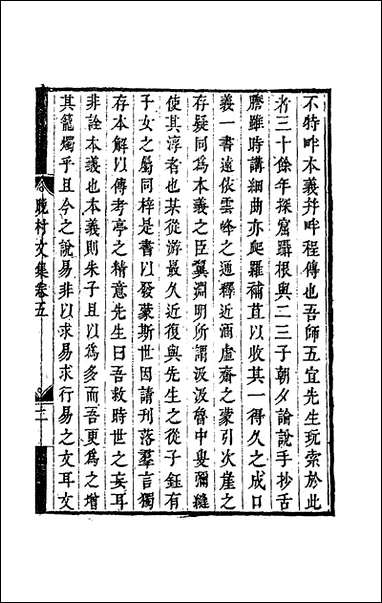 不特畔本義幷畔程傳也吾師五宜先生玩索於此
者三十餘年探窟躡根與二三子朝夕論說手抄舌
謄雖時講細曲亦爬羅補苴以收其一得久之成口
義一書遠依雲峰之通釋近涵虛齋之蒙引次崖之
存疑同為本義之臣翼淵明所謂汲汲魯中叟彌縫
使其淳者也某從游最久近復與先生之從子鈺有
子女之屬同梓是書以發蒙斯世因請刊落羣言獨
存本解以傳考亭之精意先生曰吾救時世之妄耳
非詮本義也本義則朱子且以為多而吾更為之增
其籠燭乎且今之說易非以求易求行易之文耳文
晚村文集卷五
二